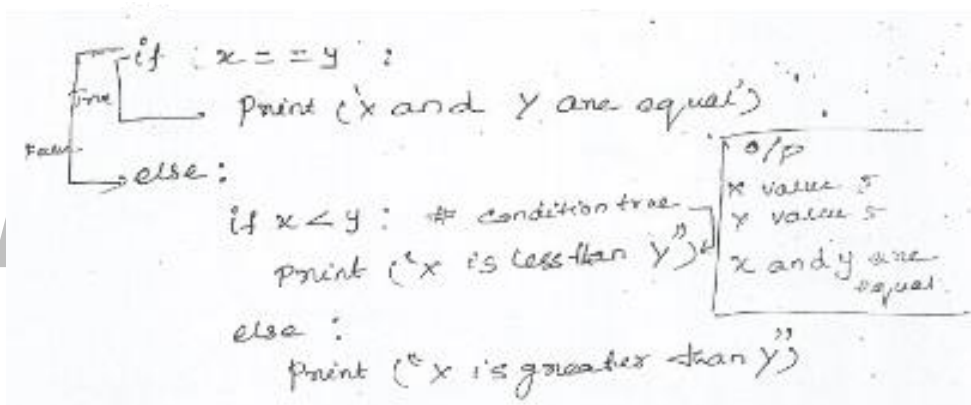 if x == y :
True
print ('x and y are equal')
False
else :
if x < y : # condition true
print ("x is less than y")
else :
print ("x is greater than y")
o/p
x value 5
y value 5
x and y are
equal.